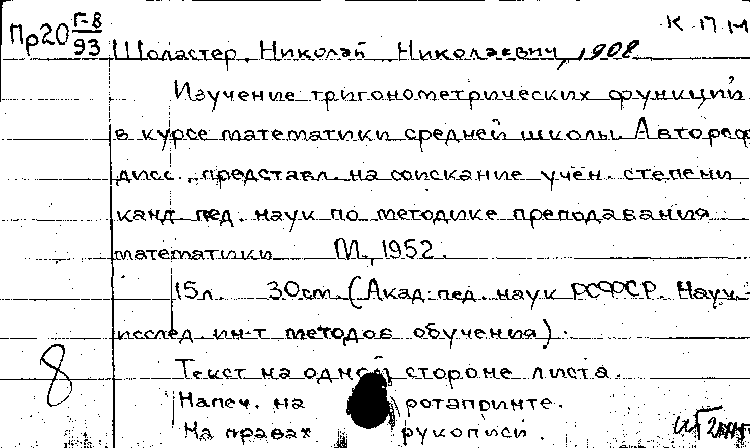 Пр20 Г-8/93
К. П. М
Шоластер, Николай Николаевич, 1908
Изучение тригонометрических функций
в курсе математики средней школы. Автореф
дисс., представл. на соискание учён. степени
канд. пед. наук по методике преподавания
математики М., 1952.
15л. 30см. (Акад. пед. наук РСФСР. Науч.-
исслед. ин-т методов обучения).
8
Текст на одной стороне листа.
Напеч. на ротапринте.
На правах рукописи.